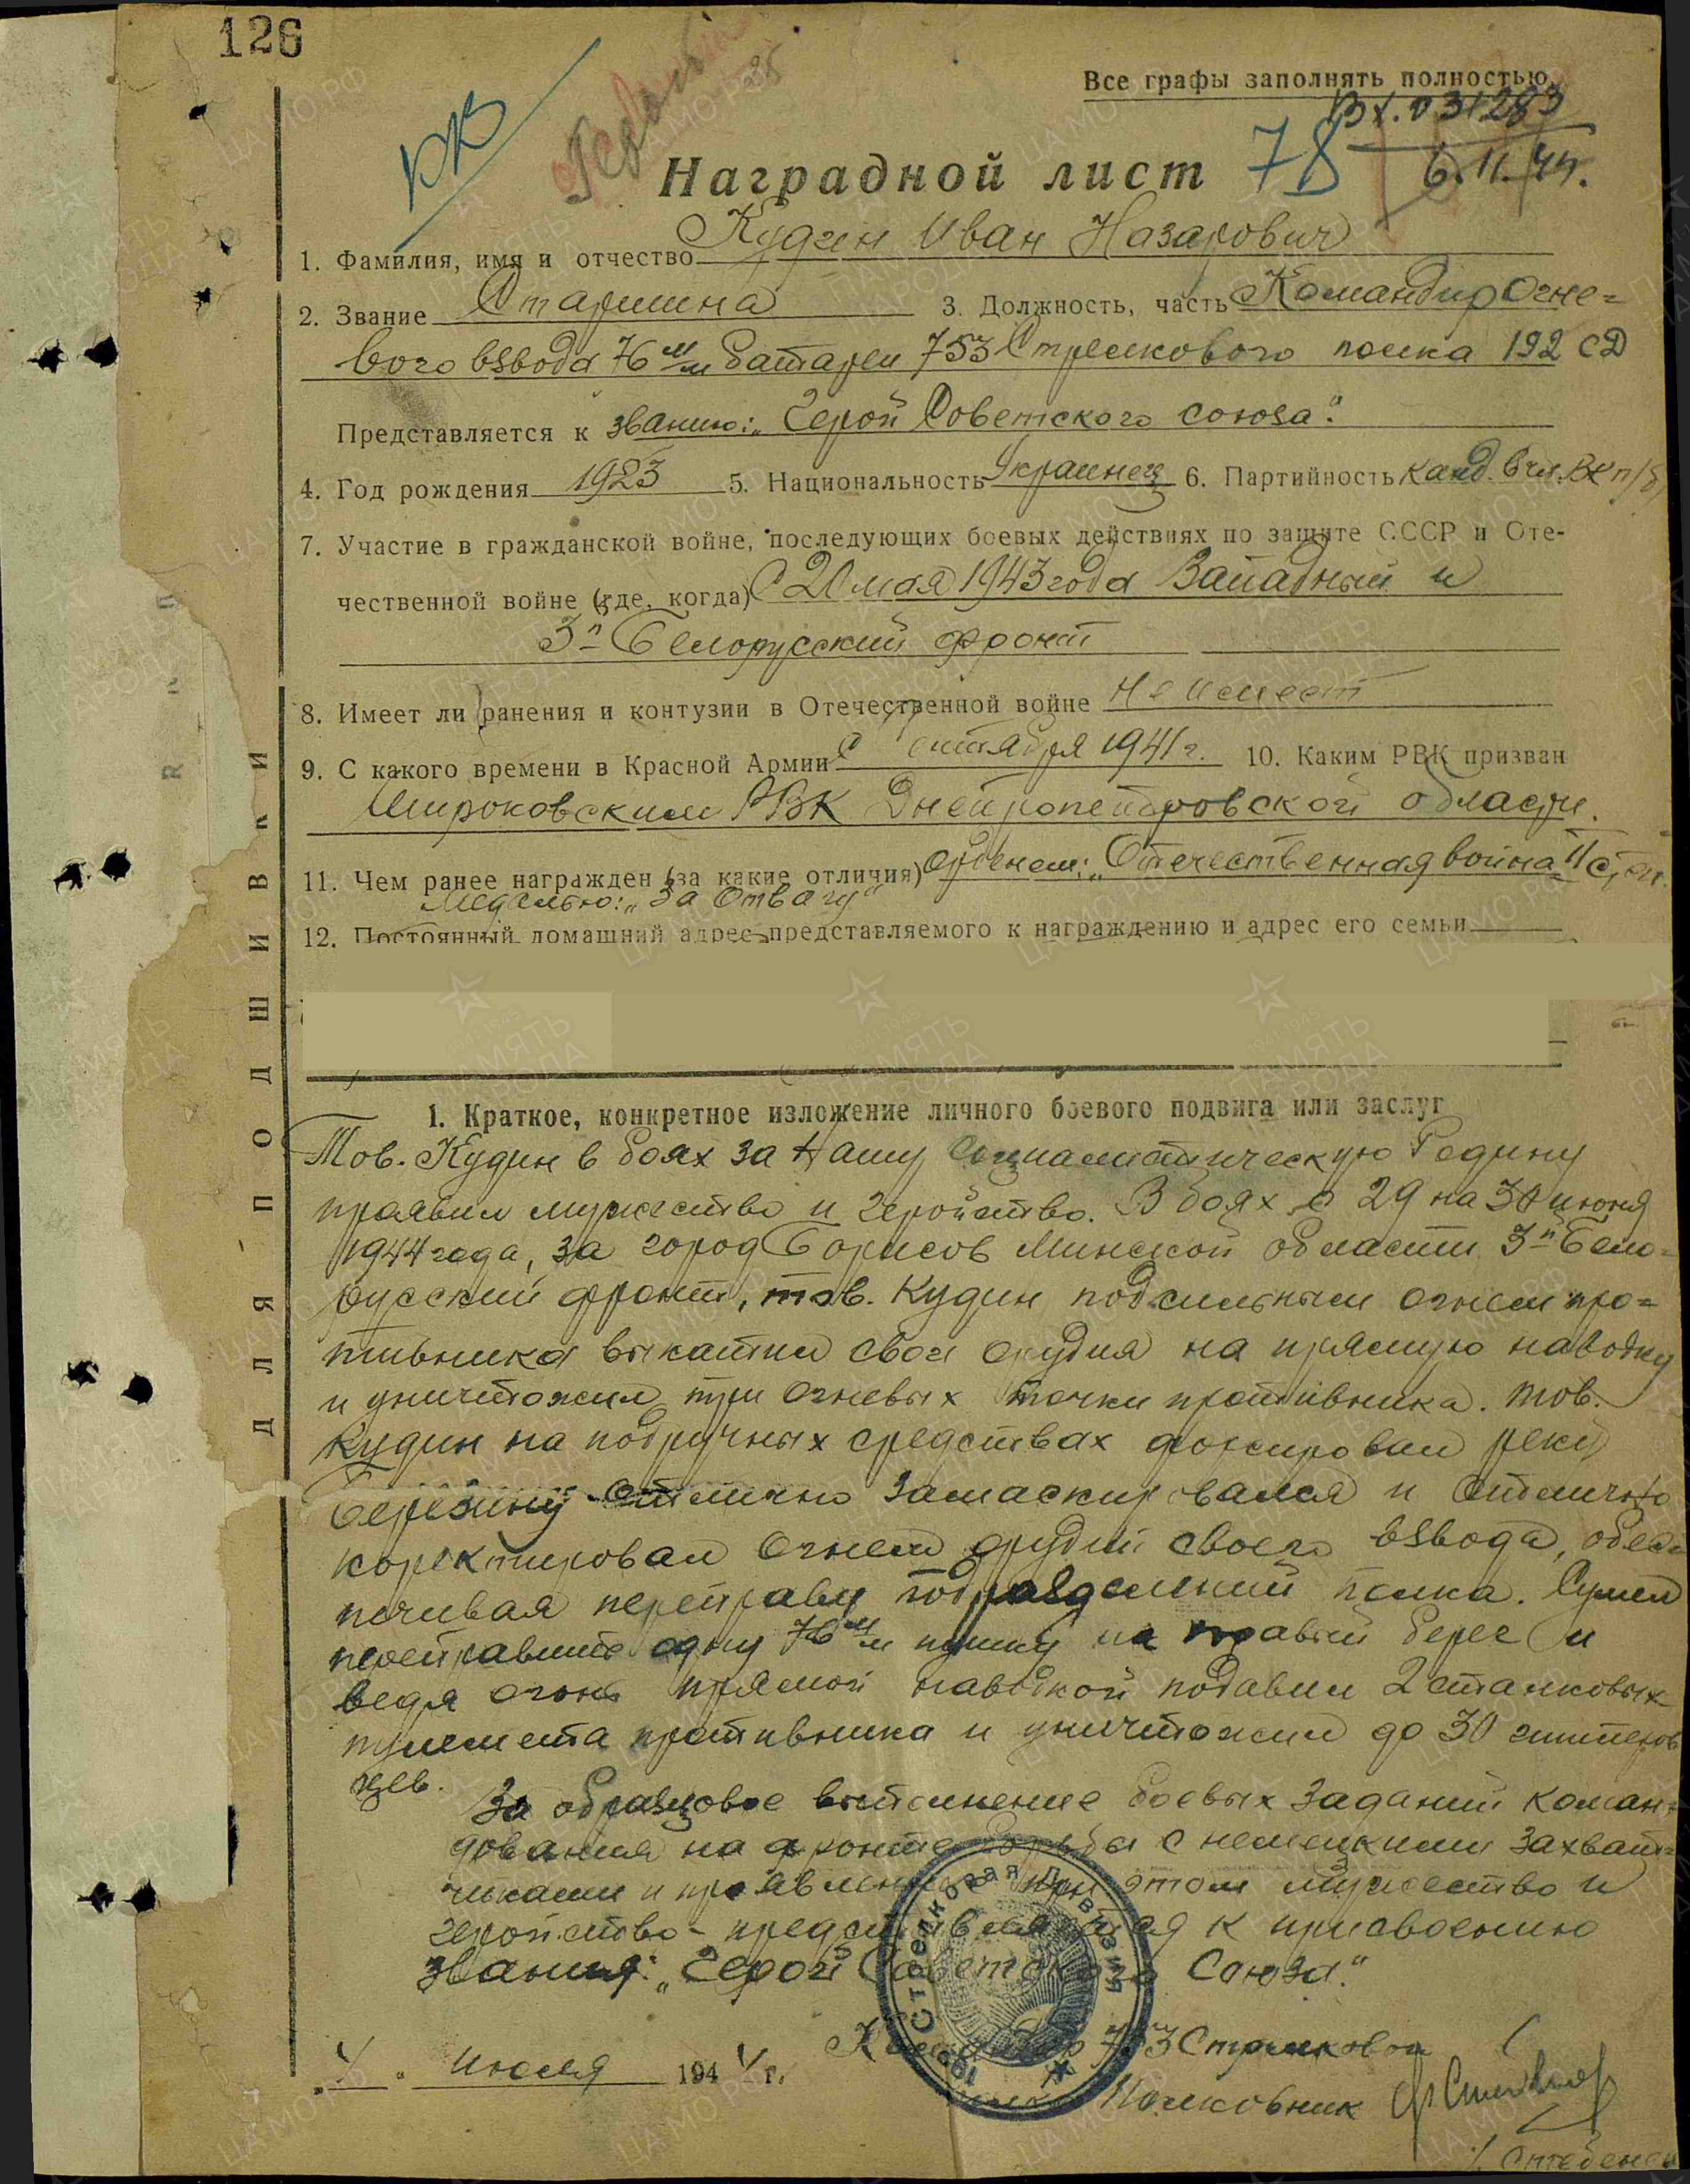 126
Все графы заполнять полностью.
Вх. 031283
РВ
78
6.11.44.
Наградной лист
1. Фамилия, имя и отчество Кудин Иван Назарович
2. Звание Старшина 3. Должность, часть Командир огне=
вого взвода 76 м/м батареи 753 Стрелкового полка 192 СД
Представляется к званию: „Герой Советского союза".
4. Год рождения 1923 5. Национальность Украинец 6. Партийность Канд. в чл. ВКП/б/
7. Участие в гражданской войне, последующих боевых действиях по защите СССР и Оте-
чественной войне (где, когда) С 20 мая 1943 года Западный и
3й Белорусский фронт
8. Имеет ли ранения и контузии в Отечественной войне не имеет
9. С какого времени в Красной Армии с октября 1941 г. 10. Каким РВК призван
Широковским РВК Днепропетровской области.
11. Чем ранее награжден (за какие отличия) орденом: „Отечественная война" II ст.
Медалью: „За Отвагу"
12. Постоянный домашний адрес представляемого к награждению и адрес его семьи
ДЛЯ ПОДШИВКИ
1. Краткое, конкретное изложение личного боевого подвига или заслуг
Тов. Кудин в боях за Нашу Социалистическую Родину
проявил мужество и геройство. В боях с 29 на 30 июня
1944 года, за город Борисов Минской области 3й Бело=
русский фронт, тов. Кудин под сильным огнем про=
тивника выкатил свои орудия на прямую наводку
и уничтожил три огневых точки противника. тов.
Кудин на подручных средствах форсировал реку
Березину отлично замаскировался и отлично
коректировал огнем орудий своего взвода, обес=
печивая переправу подразделений полка. Сумел
переправить одну 76 м/м пушку на правый берег и
ведя огонь прямой наводкой подавил 2 станковых
пулемета противника и уничтожил до 30 гитлеров
цев.
За образцовое выполнение боевых заданий коман=
дования на фронте борьбы с немецкими захват=
чиками и проявленные при этом мужество и
геройство - представляется к присвоению
звания: „Герой Советского Союза."
Стрелковая дивизия
192
Командир 753 Стрелковой
„4" июля 1944 г.
Полковник